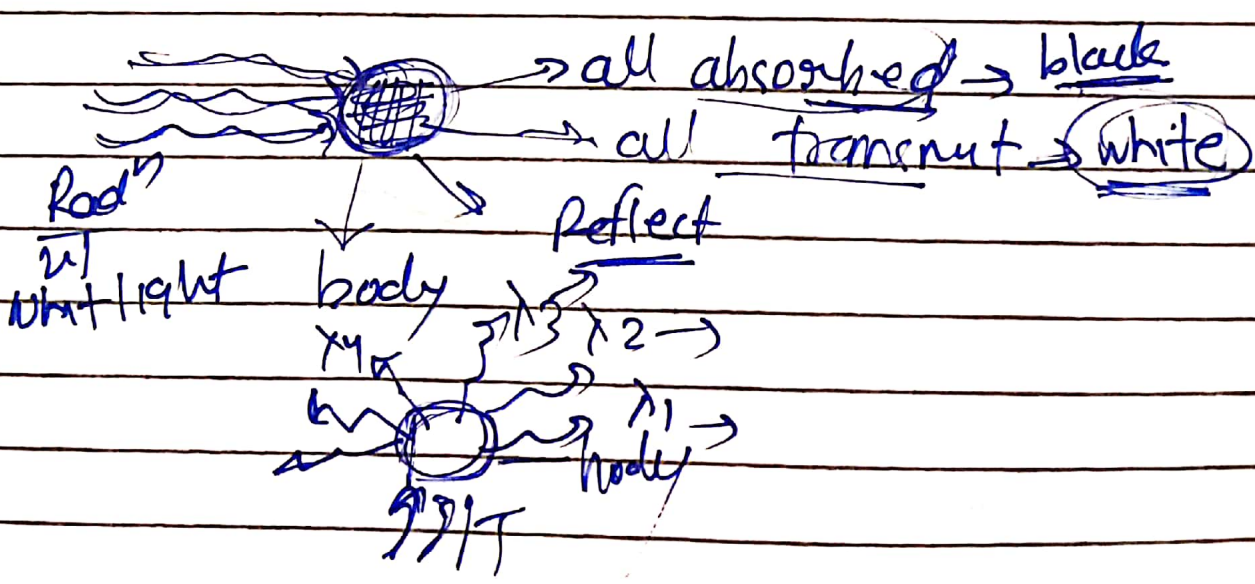 all absorbed → black
all transmut → white
Radⁿ
Reflect
light body
λ3 λ2 →
λ4
λ1 →
body
T